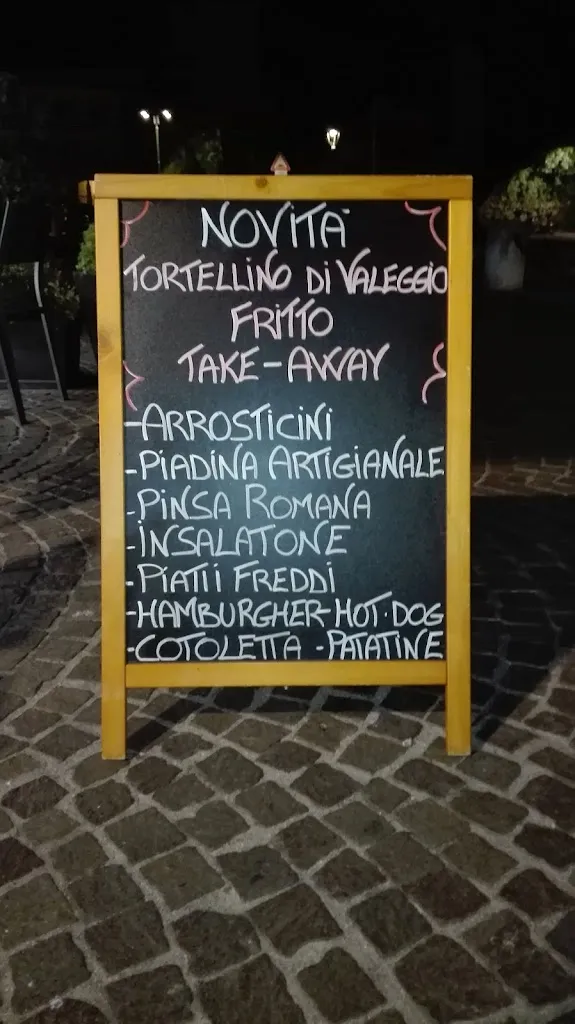 NOVITÀ
TORTELLINO DI VALEGGIO
FRITTO
TAKE-AWAY
-ARROSTICINI
-PIADINA ARTIGIANALE
-PINSA ROMANA
-INSALATONE
-PIATTI FREDDI
-HAMBURGHER-HOT·DOG
-COTOLETTA -PATATINE